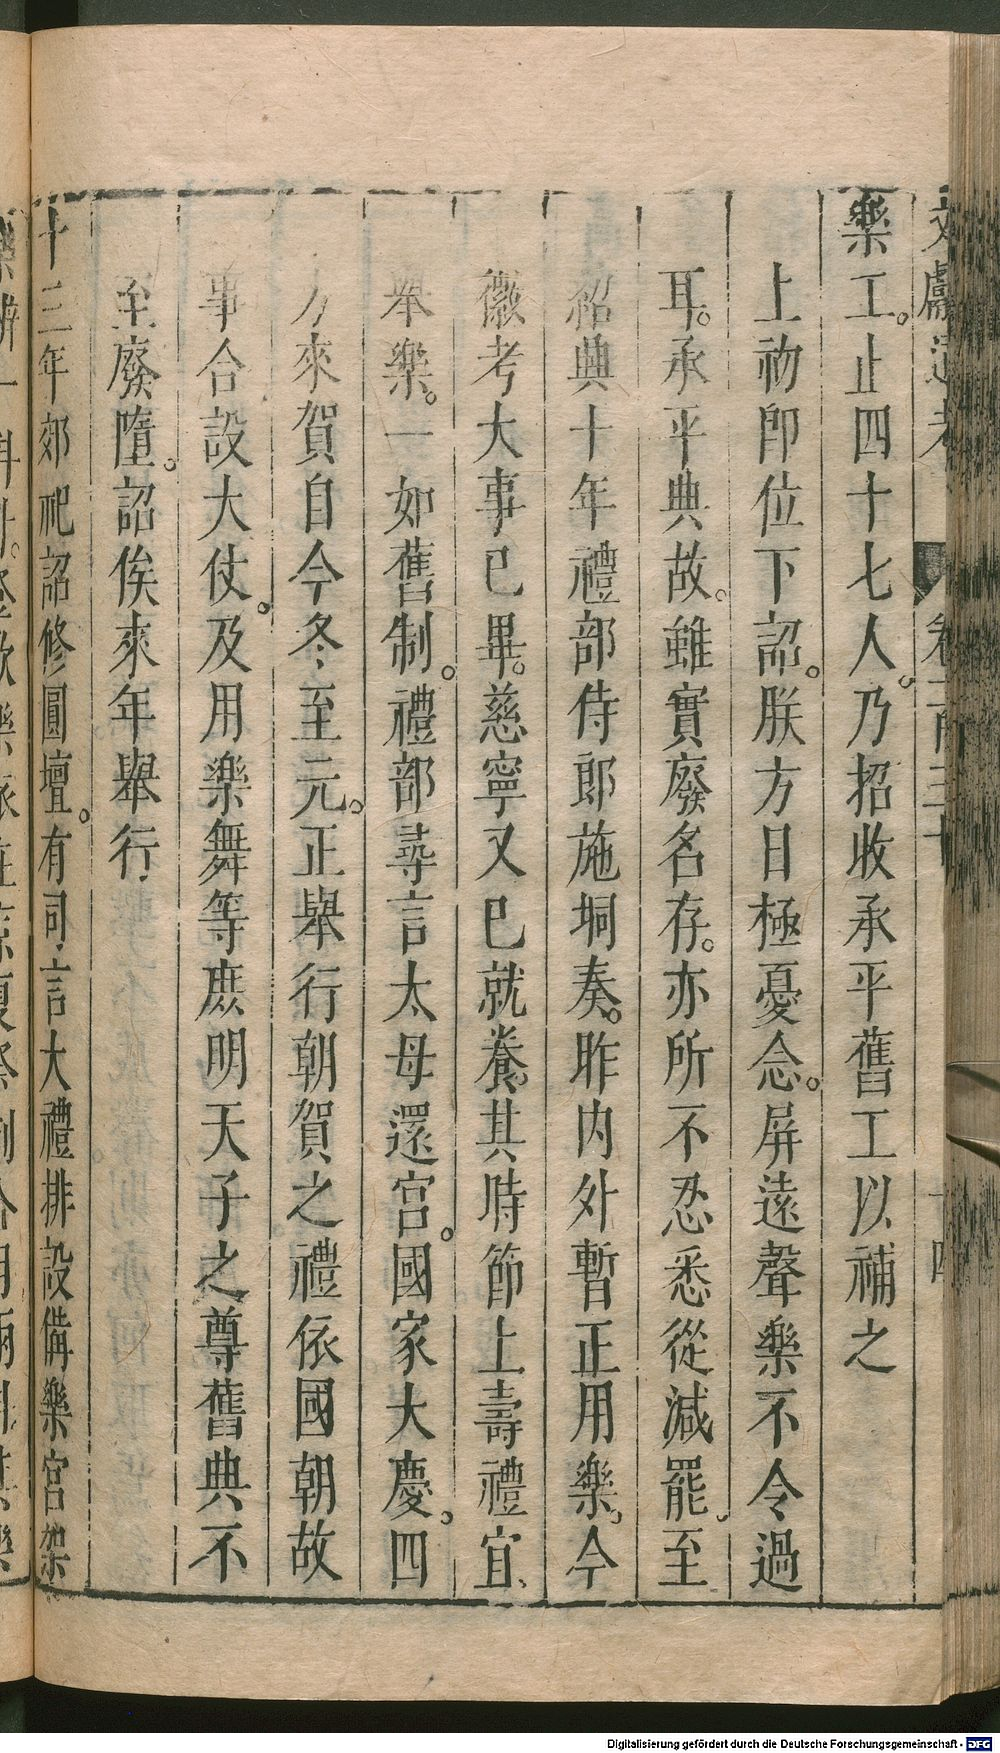 文獻通考 卷一百三十 十四
樂工。止四十七人。乃招收承平舊工以補之
上初卽位下詔。朕方日極憂念。屏遠聲樂不令過
耳。承平典故。雖實廢名存。亦所不忍悉從減罷。至
紹興十年禮部侍郎施坰奏。昨内外暫止用樂。今
徽考大事已畢。慈寧又已就養。其時節上壽禮宜、
舉樂。一如舊制。禮部尋言太母還宮。國家大慶。四
方來賀自今冬至元。正舉行朝賀之禮依國朝故
事合設大仗。及用樂舞等庶明天子之尊舊典不
至廢隳。詔俟來年舉行
十三年郊祀詔修圓壇。有司言大禮排設備樂宮架
Digitalisierung gefördert durch die Deutsche Forschungsgemeinschaft - DFG